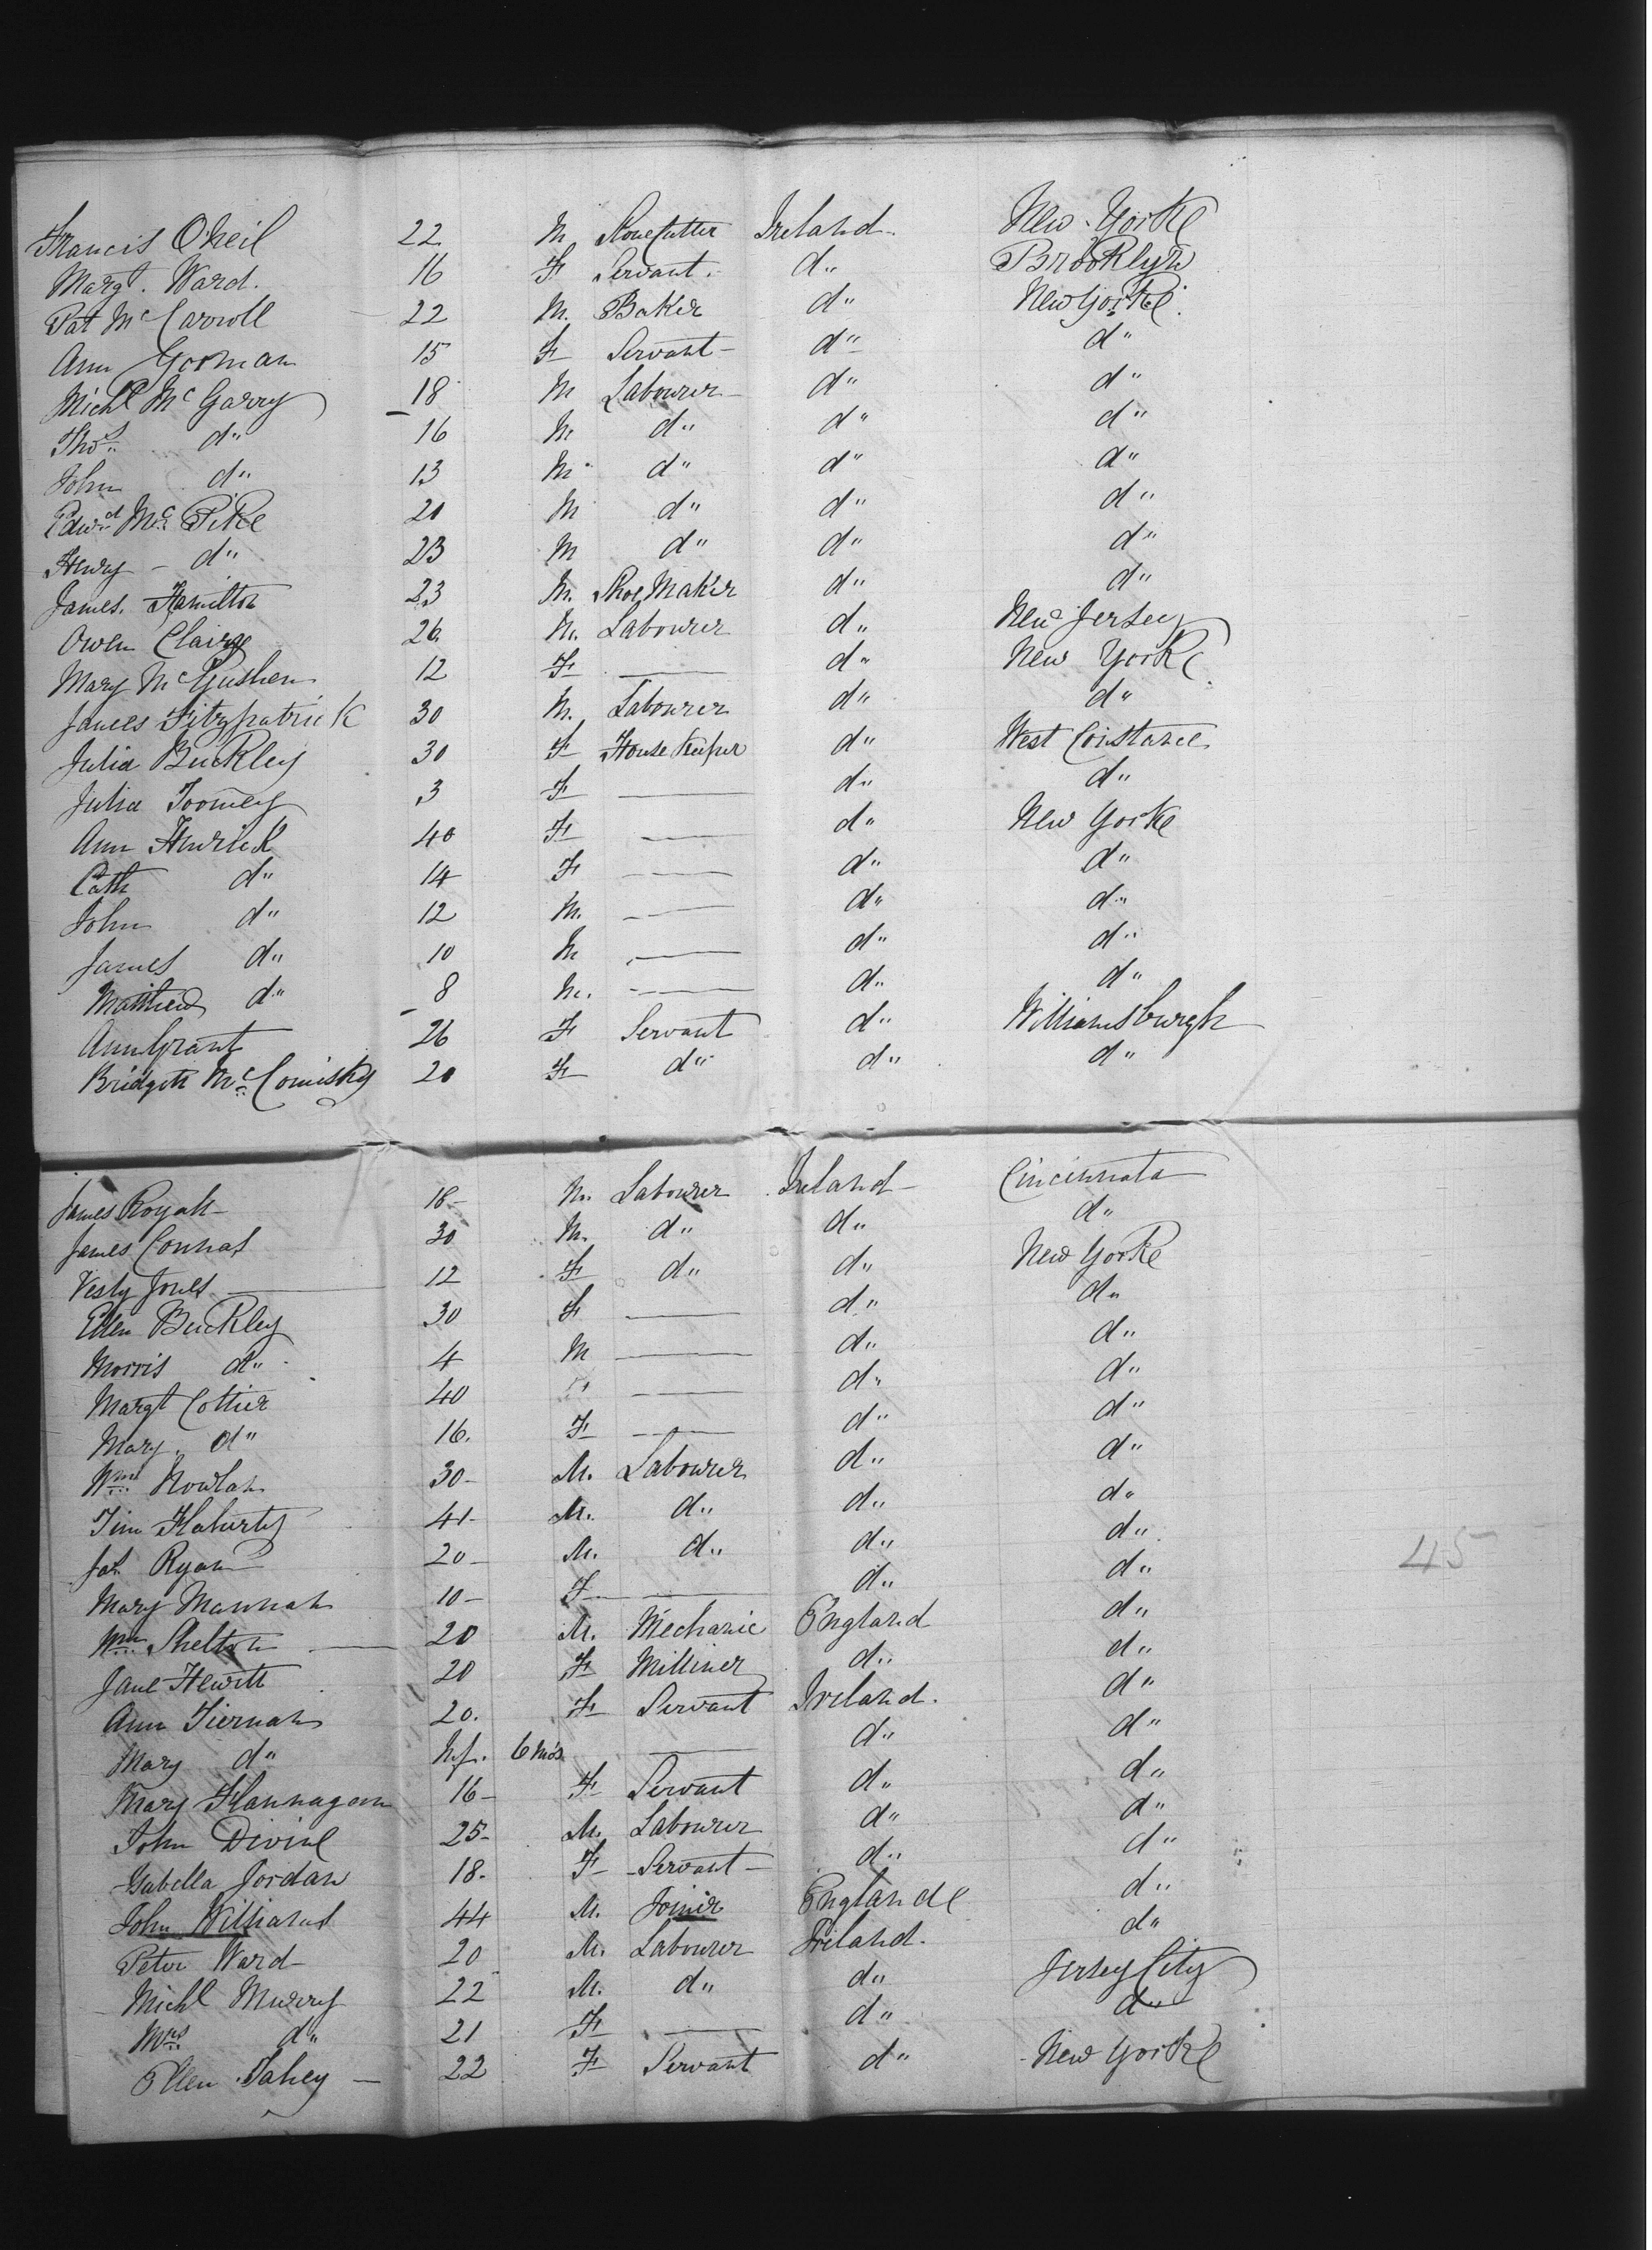 Francis O'Neil 22 M Stone Cutter Ireland New-Yorke
Margt. Ward. 16 F Servant. d" Brooklyn
Pat McCarroll 22 M. Baker d" New Yorke.
Ann Gorman 15 F Servant - d" d"
Michl McGarry 18 M Labourer d" d"
Thos d" 16 M d" d" d"
John d" 13 M d" d" d"
Edwd McPike 20 M d" d" d"
Henry - d" 23 M d" d" d"
James. Hamilton 23 M. Shoe Maker d" d"
Owen 26. M. Labourer d" New Jersey
Mary McGushen 12 F — d" New York
James Fitzpatrick 30 M. Labourer d" d"
Julia Buckley 30 F House Keeper d" West Constance
Julia Toomey 3 F — d" d"
Ann 40 F — d" New Yorke
Cath d" 14 F — d" d"
John d" 12 M. — d" d"
James d" 10 M — d" d"
Matthew d" 8 M. — d" d"
Ann Grant 26 F Servant d" Williamsburgh
Bridgett McComisky 20 F d" d" d"
James Royal - 18 - M. Labourer Ireland - Cincinnata
James 30 M. d" d" d"
Vesty Jones — 12 F d" d" New Yorke
Ellen Buckley 30 F — d" d"
Morris d" 4 M — d" d"
Margt Cottier 40 F — d" d"
Mary. d" 16. F — d" d"
Wm Nowlan 30 - M. Labourer d" d"
Tim Flaherty 41 - M. d" d" d"
Jas Ryan 20 - M. d" d" d"
Mary Mannah 10 - F — d" d"
Wm Shelton — 20 M. Mechanic England d"
Jane Hewitt 20 F Milliner d" d"
Ann Tiernan 20. F Servant Ireland. d"
Mary d" Inf. 6 Mos — d" d"
Mary Flannagan 16 - F Servant d" d"
John Divine 25 - M. Labourer d" d"
Isabella Jordan 18. F - Servant - d" d"
John Williams 44 M. Joiner England d"
Peter Ward 20 M. Labourer Ireland. d"
Michl Murry 22 M. d" d" Jersey City
Mrs d" 21 F — d" d"
Ellen Fahey - 22 F Servant d" New Yorke
45